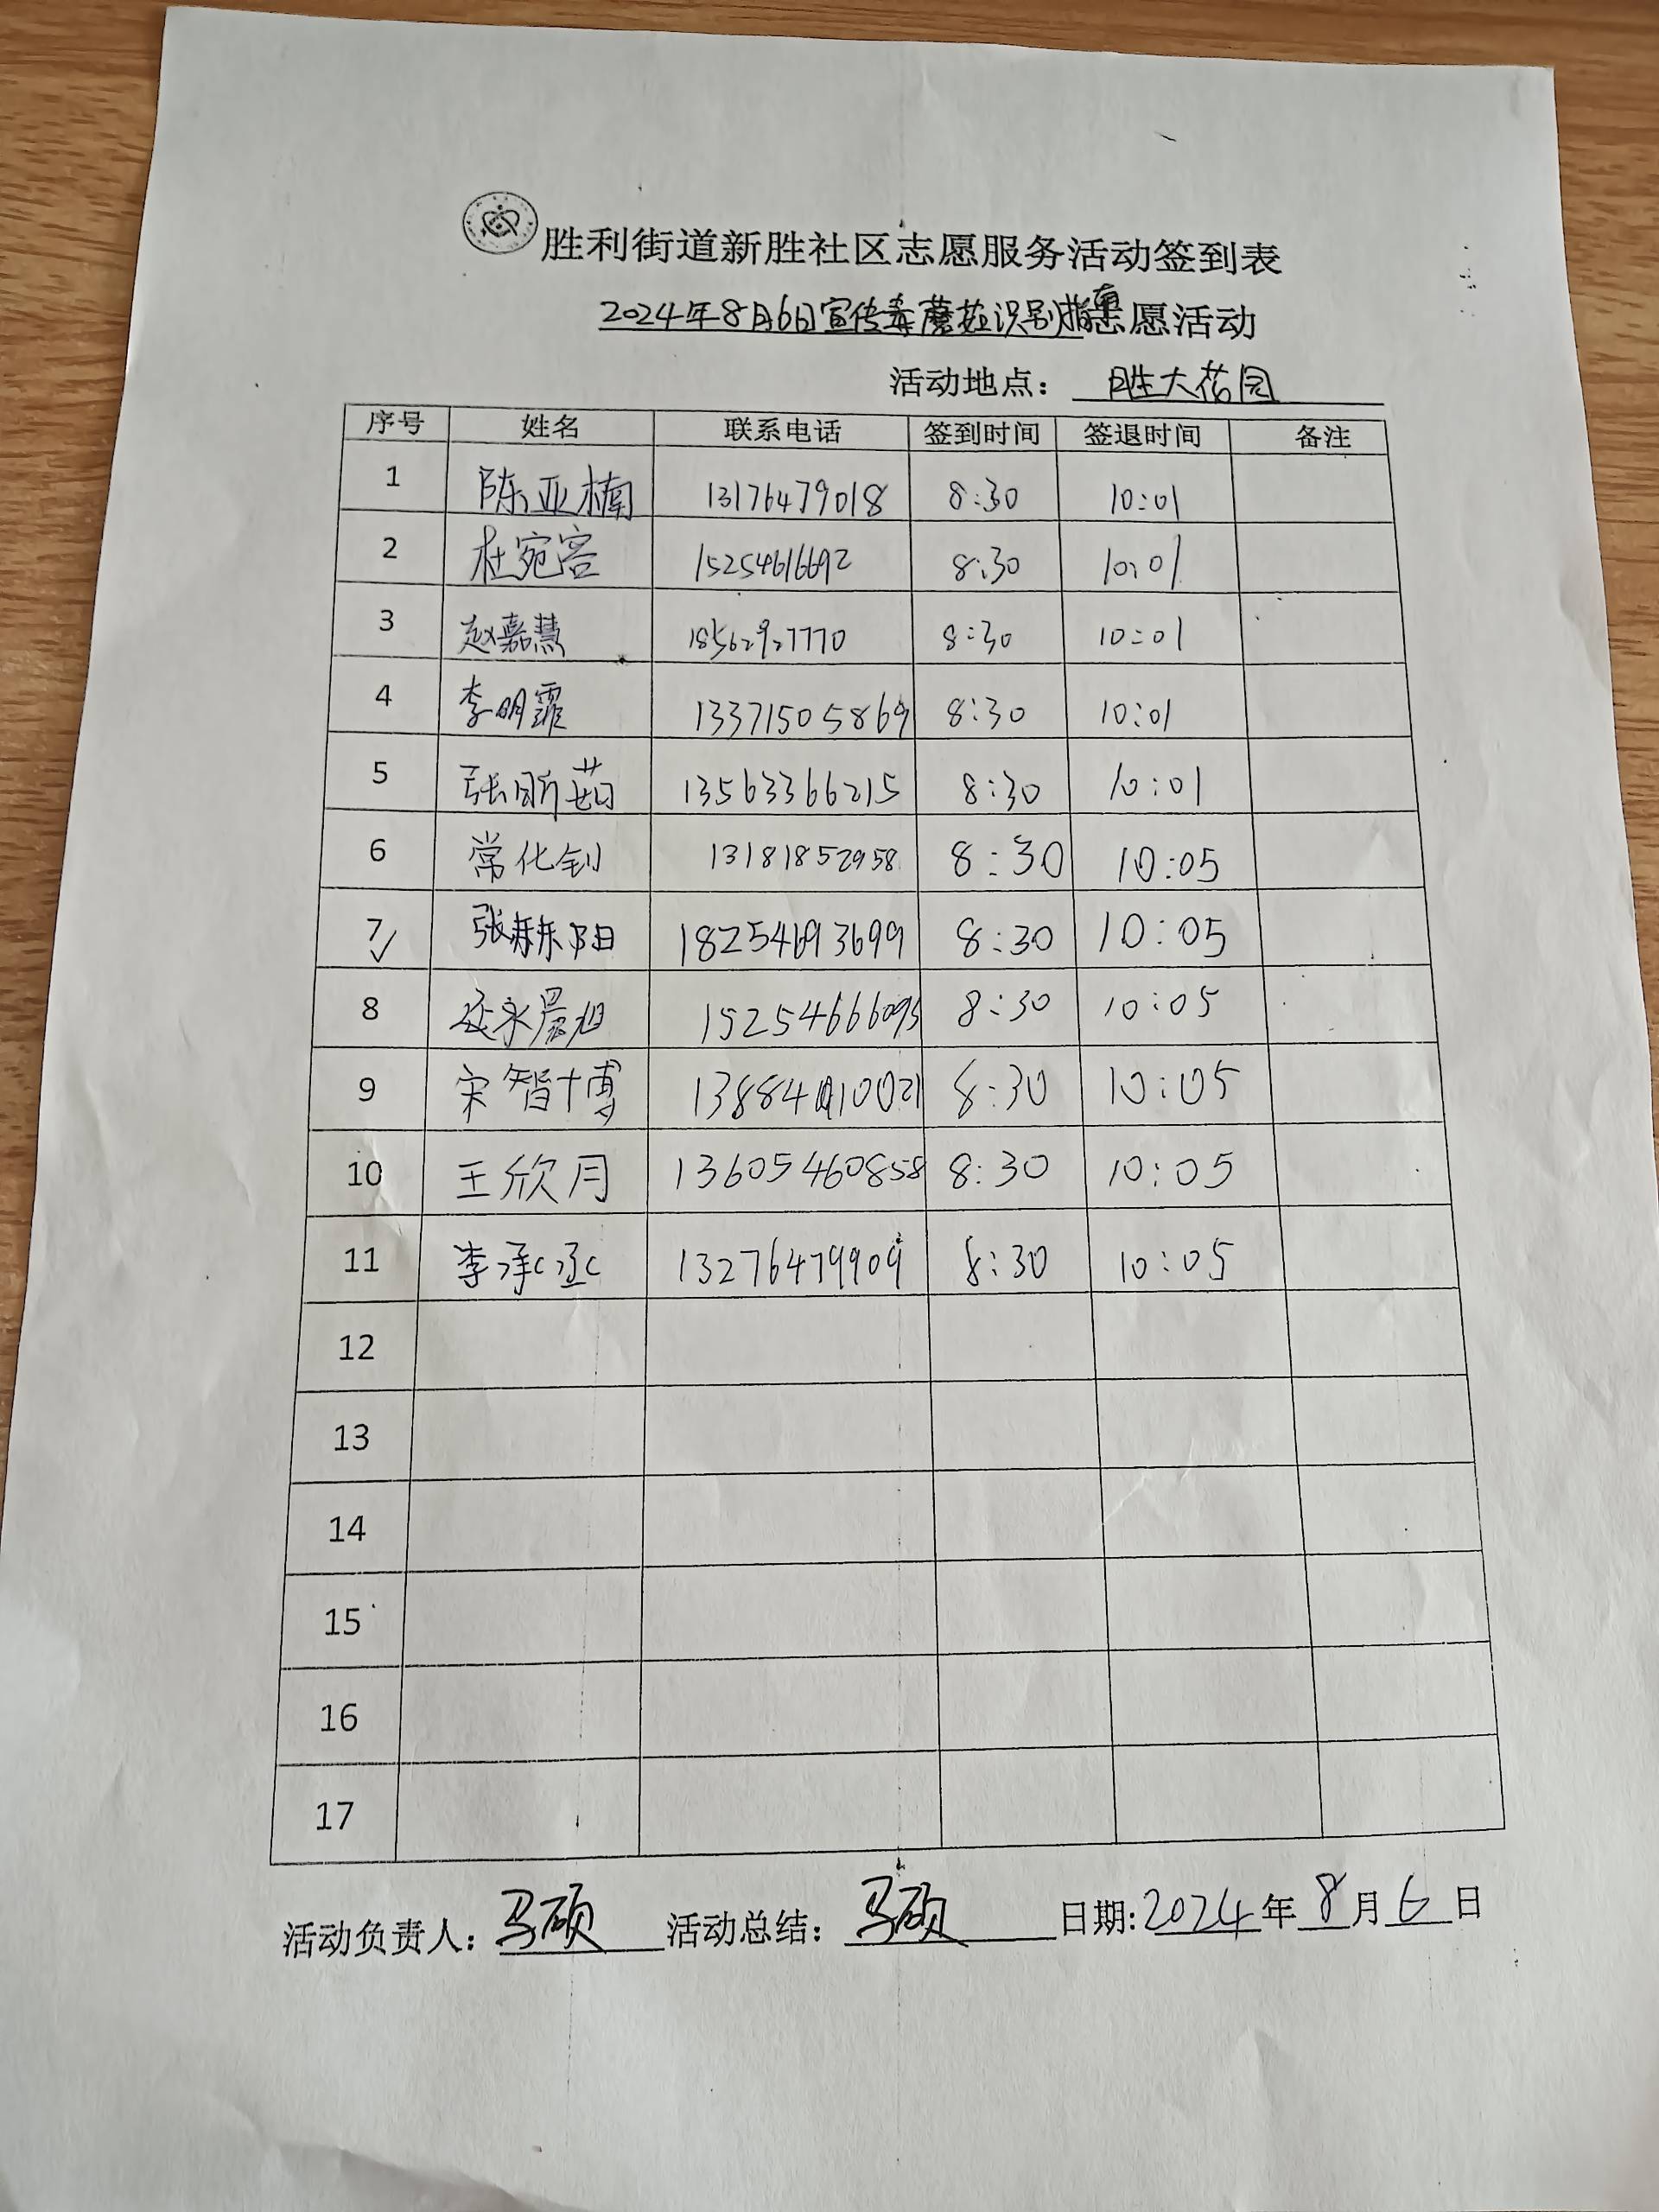 胜利街道新胜社区志愿服务活动签到表
2024年8月6日宣传毒蘑菇识别指南志愿活动
活动地点： 胜大花园
序号 姓名 联系电话 签到时间 签退时间 备注
1 陈亚楠 13176479018 8:30 10:01
2 杜宛容 15254616692 8:30 10:01
3 赵嘉慧 18562927770 8:30 10:01
4 李明霏 13371505869 8:30 10:01
5 张昕茹 13563366215 8:30 10:01
6 常化钊 13181852958 8:30 10:05
7 张栋阳 18254693699 8:30 10:05
8 8:30 10:05
9 宋智博 8:30 10:05
10 王欣月 13605460858 8:30 10:05
11 李承丞 13276479909 8:30 10:05
12
13
14
15
16
17
活动负责人：马硕 活动总结：马硕 日期:2024年8月6日